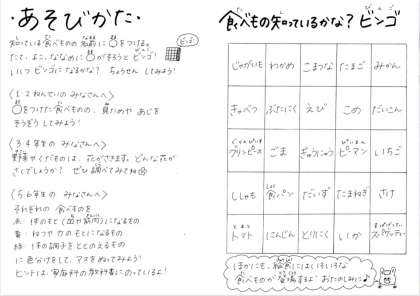 ・あそびかた・
知っている食べものの名前に○をつける。
たて、よこ、ななめに○がそろうとビンゴ
いくつビンゴになるかな？ ちょうせんしてみよう！
〈1・2ねんせいの みなさんへ〉
○をつけた食べものの、見ためや あじを
そうぞうしてみよう！
〈3・4年生の みなさんへ〉
野菜やくだものは、花がさきます。どんな花が
さくでしょうか？ ぜひ調べてみてね
〈5・6年生の みなさんへ〉
それぞれの 食べものを
赤：体のもと（血や筋肉）になるもの
黄：ねつや力のもとになるもの
緑：体の調子をととのえるもの
に色分けをして、マスをぬってみよう！
ヒントは、家庭科の教科書にのっているよ！
食べもの知っているかな？ビンゴ
じゃがいも わかめ こまつな たまご みかん
きゃべつ ぶたにく えび こめ だいこん
グリンピース ごま ぎゅうにゅう ピーマン いちご
ししゃも 食パン だいず たまねぎ さけ
トマト にんじん とりにく いか スパゲッティー
ほかにも、給食にはいろいろな
食べものが登場するよ。おたのしみに♪